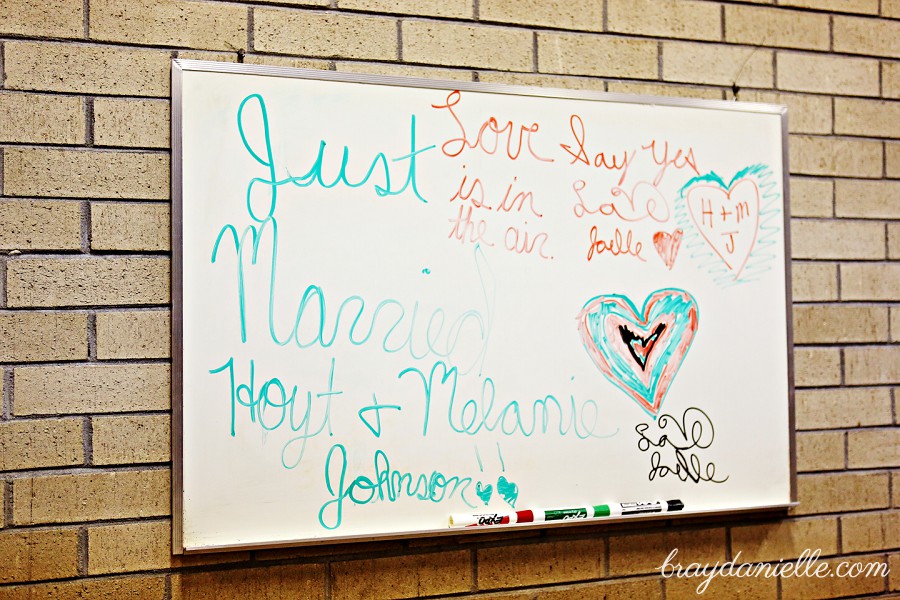 Just
Married
Hoyt + Melanie
Johnson!!
Love
is in
the air.
Say Yes
Love
Jaelle
H + M
J
Love
Jaelle
EXPO
EXPO
braydanielle.com